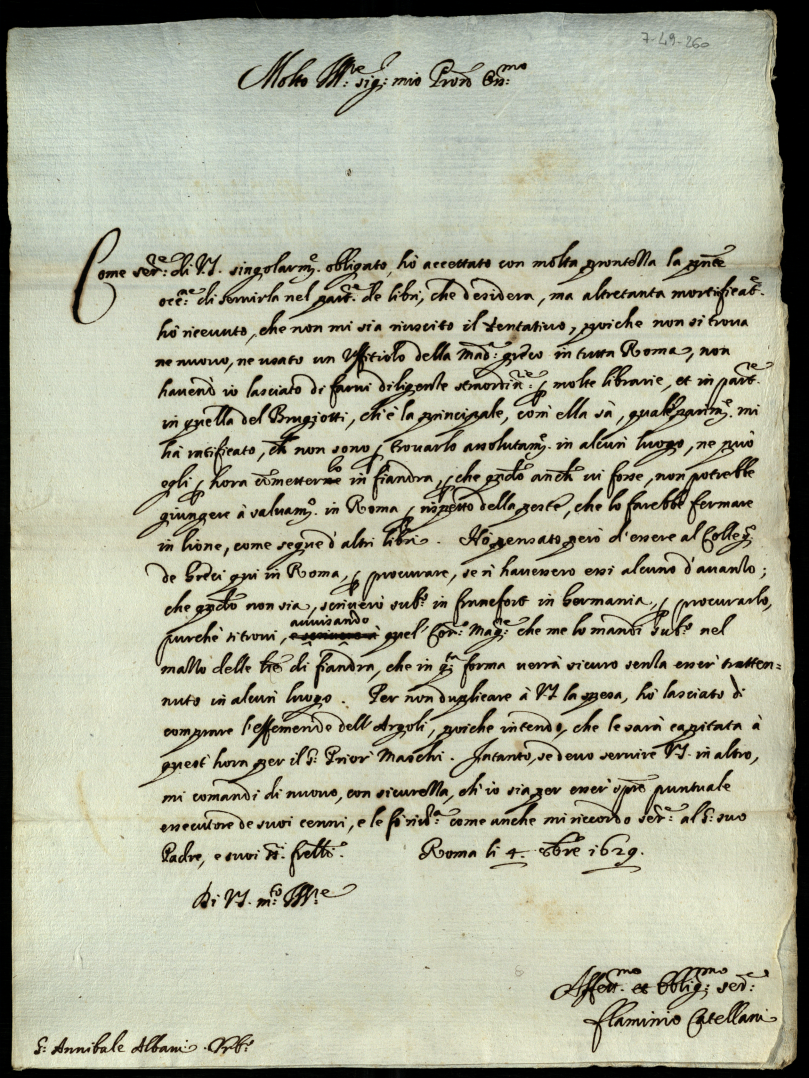 7-49-260
Molto Ill.re sig.r mio Pron Oss.mo
Come ser.re di V.S. singolarm.e obligato, hò accettato con molta prontezza la pnte
occ.ne di servirla nel part.re de libri, che desidera, ma altretanta mortificat.e
hò ricevuto, che non mi sia riuscito il tentativo, poiche non si trova
ne nuovo, ne usato un Uffitiolo della Mad.a greco in tutta Roma, non
havend' io lasciato di farvi diligenze straordin.rie p molte librarie, et in part.re
in quella del Brugiotti, ch'è la principale, com' ella sà, quale parim.e mi
hà ratificato, ch non sono p trovarlo assolutam.e in alcun luogo, ne può
egli p hora cometterne lo in fiandra, p che qndo anch vi fosse, non potrebbe
giungere à salvam.o in Roma p rispetto della peste, che lo farebbe fermare
in lione, come segue d'altri libri. Hò pensato però d'essere al Colleg.o
de Greci qui in Roma, p procurare, se n' havessero essi alcuno d'avanzo;
che qndo non sia, scriverò sub.o in francfort in Germania, p procurarlo,
avvisando
purchè si trovi, à quel Cor.re Mag.re che me lo mandi sub.o nel
mazzo delle lre di fiandra, che in q.ta forma verrà sicuro senza esser tratten=
nuto in alcun luogo. Per non duplicare à V.S. la spesa, hò lasciato di
comprare l'effemeride dell'Argoli, poiche intendo, che le sarà capitata à
quest' hora per il S.r Prior Maschi. Intanto, se devo servire V.S. in altro,
mi comandi di nuovo, con sicurezza, ch'io sia per esser smpre puntuale
essecutore de suoi cenni, e le fò riv.za come anche mi ricordo ser.re al S.r suo
Padre, e suoi SS.ri fratelli. Roma li 4. 8bre 1629.
Di V.S. m.to Ill.re
Affett.mo et Oblig.mo ser.re
flaminio Catellani
S.r Annibale Albani . Urb.o